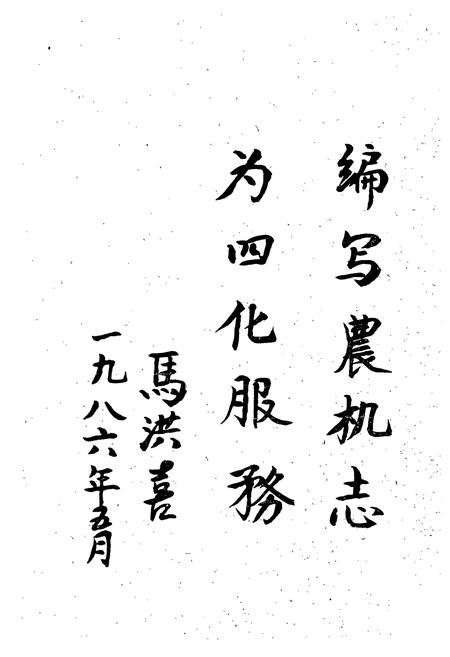 编写農机志
为四化服務
馬洪喜
一九八六年五月